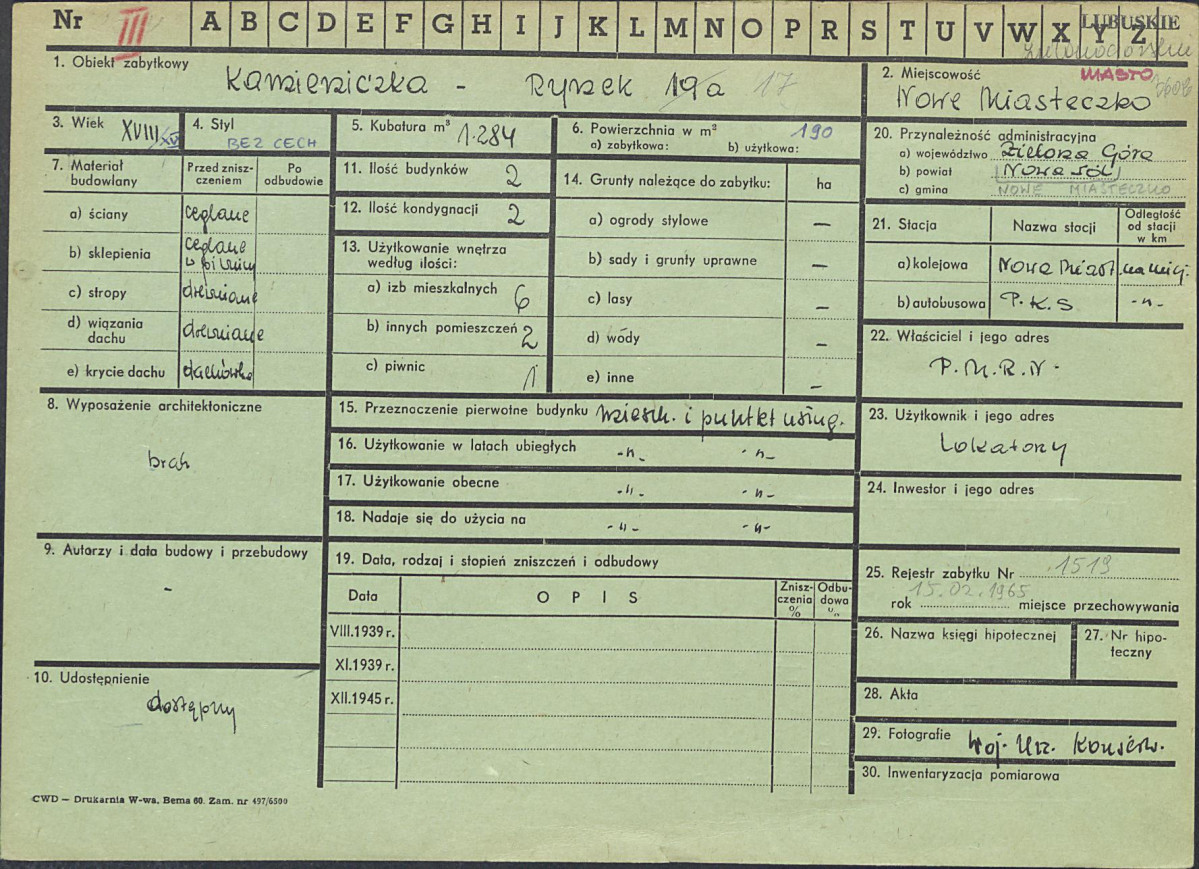 Nr III A B C D E F G H I J K L M N O P R S T U V W X Y Z
LUBUSKIE
1. Obiekt zabytkowy
Kamieniczka - Rynek 19a 17
2. Miejscowość
MIASTO
Nowe Miasteczko
3. Wiek XVIII/XIX
4. Styl
BEZ CECH
5. Kubatura m³ 1.284
6. Powierzchnia w m² 190
a) zabytkowa: b) użytkowa:
7. Materiał budowlany
Przed znisz-
czeniem
Po
odbudowie
a) ściany ceglane
b) sklepienia ceglane
w piwnicy
c) stropy drewniane
d) wiązania
dachu drewniane
e) krycie dachu dachówka
8. Wyposażenie architektoniczne
brak
9. Autorzy i data budowy i przebudowy
-
10. Udostępnienie
dostępny
11. Ilość budynków 2
12. Ilość kondygnacji 2
13. Użytkowanie wnętrza
według ilości:
a) izb mieszkalnych 6
b) innych pomieszczeń 2
c) piwnic 1
14. Grunty należące do zabytku: ha
a) ogrody stylowe —
b) sady i grunty uprawne —
c) lasy —
d) wody —
e) inne —
15. Przeznaczenie pierwotne budynku mieszk. i punkt usług.
16. Użytkowanie w latach ubiegłych -"- -"-
17. Użytkowanie obecne -"- -"-
18. Nadaje się do użycia na -"- -"-
19. Data, rodzaj i stopień zniszczeń i odbudowy
Data
OPIS
Znisz-
czenia
%
Odbu-
dowa
%
VIII.1939 r.
XI.1939 r.
XII.1945 r.
20. Przynależność administracyjna
a) województwo Zielona Góra
b) powiat Nowa Sól
c) gmina NOWE MIASTECZKO
21. Stacja
Nazwa stacji
Odległość
od stacji
w km
a) kolejowa Nowe Miast. na miejs.
b) autobusowa P.K.S -"-
22. Właściciel i jego adres
P.M.R.N.
23. Użytkownik i jego adres
Lokatorzy
24. Inwestor i jego adres
25. Rejestr zabytku Nr 1519
15.02.1965
rok miejsce przechowywania
26. Nazwa księgi hipotecznej
27. Nr hipo-
teczny
28. Akta
29. Fotografie Woj. Urz. Konserw.
30. Inwentaryzacja pomiarowa
CWD — Drukarnia W-wa, Bema 60. Zam. nr 497/6500